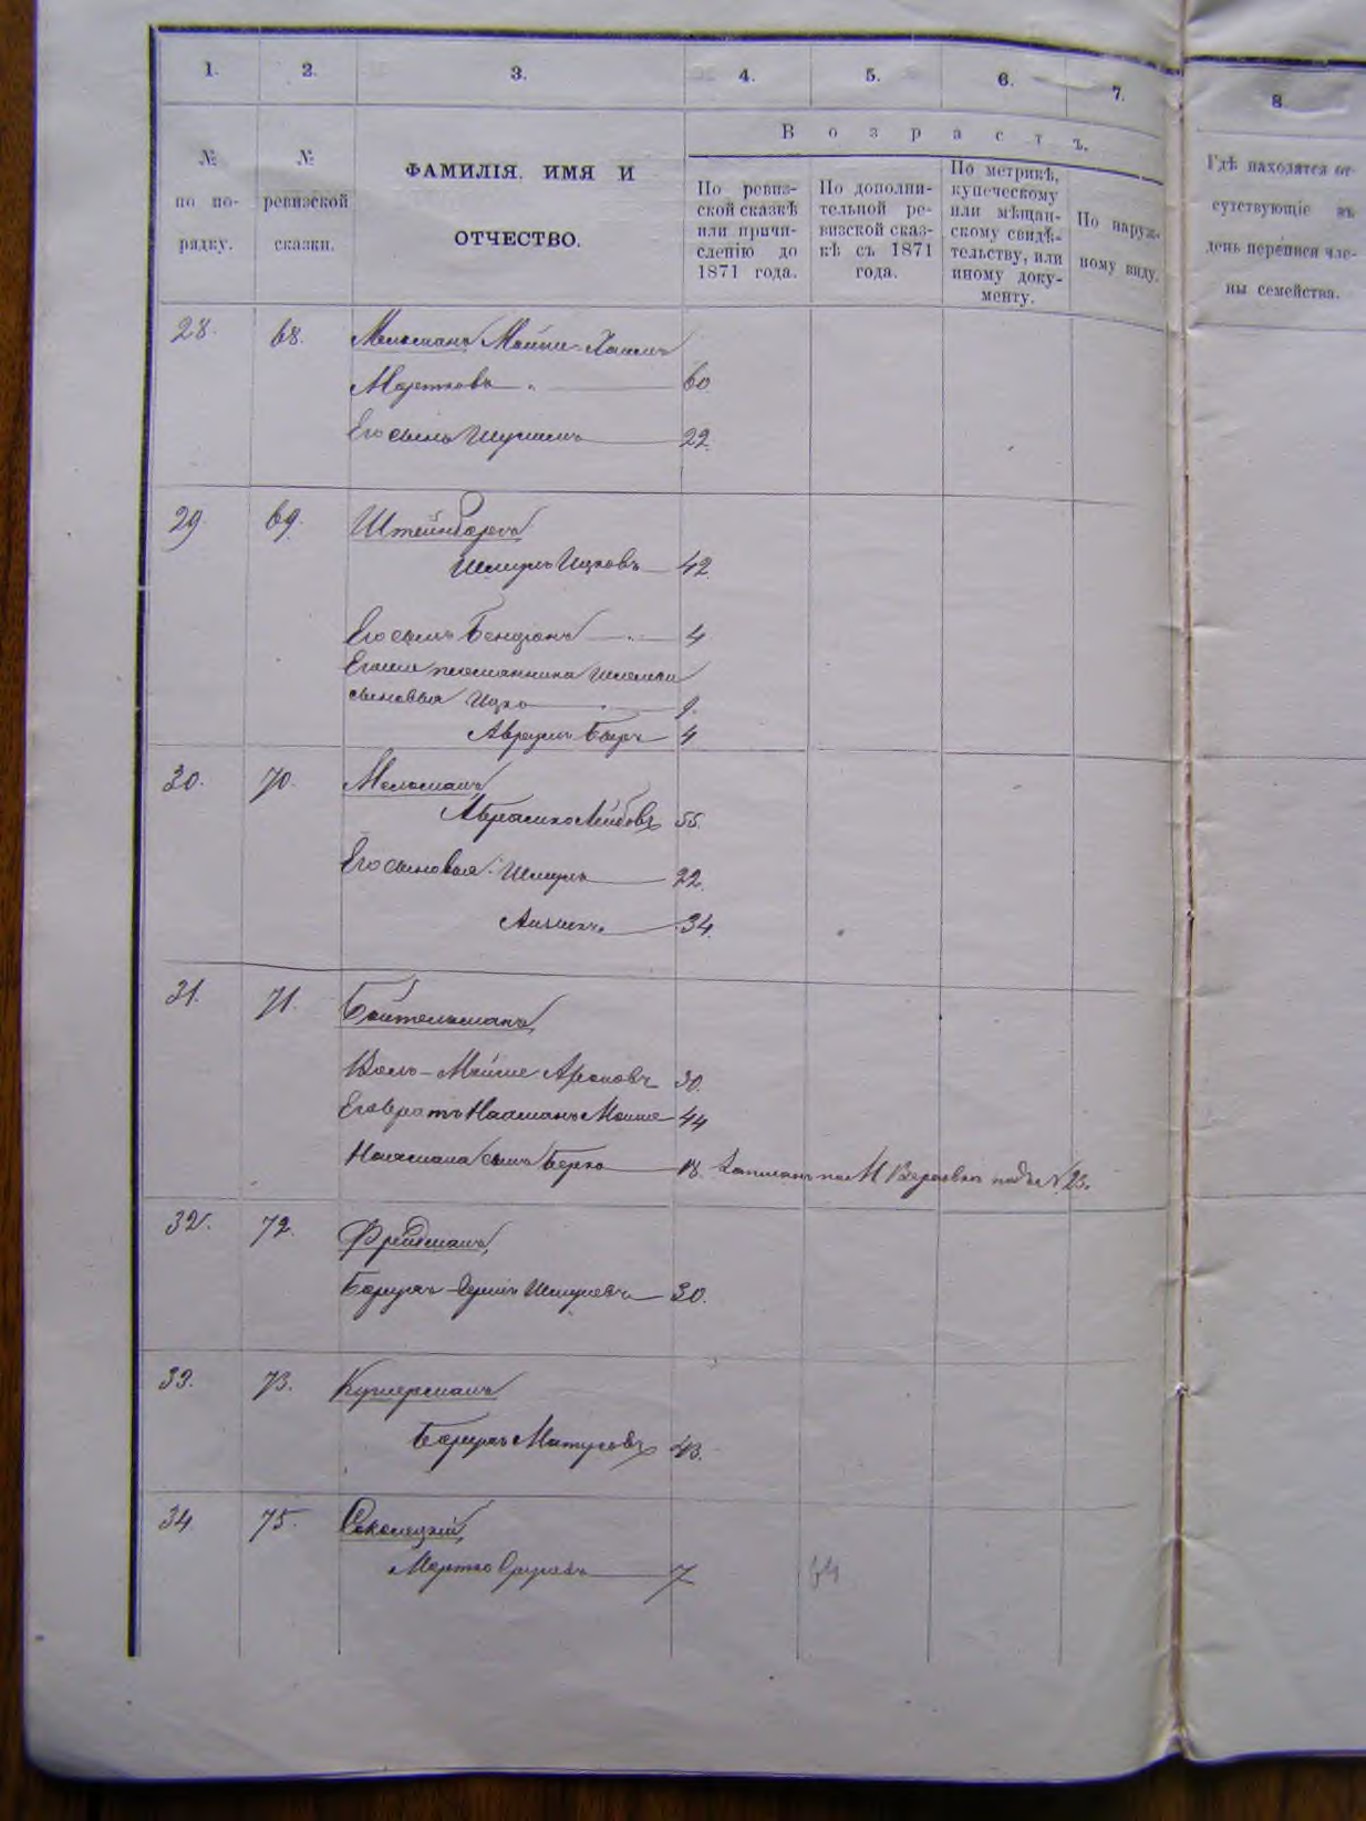 1. 2. 3. 4. 5. 6. 7. 8
Возрастъ.
№ по по-рядку.
№ ревизской сказки.
ФАМИЛІЯ, ИМЯ И
ОТЧЕСТВО.
По ревиз-
ской сказкѣ
или причи-
сленію до
1871 года.
По дополни-
тельной ре-
визской сказ-
кѣ съ 1871
года.
По метрикѣ,
купеческому
или мѣщан-
скому свидѣ-
тельству, или
иному доку-
менту.
По наруж-
ному виду.
Гдѣ находятся от-
сутствующіе въ
день переписи чле-
ны семейства.
28. 68. Мельманъ Мойше-Хаимъ
Мортковъ 60
Его сынъ Шулимъ 22.
29. 69. Штейнбергъ
Шмуль Ицковъ 42.
Его сынъ Бенционъ 4
племянника
сыновья Ицко 9.
Аврумъ Беръ 4
30. 70. Мельманъ
Абрамко Лейбовъ 55.
Его сыновья: Шмуль 22.
Айзикъ 34.
31. 71. Бойтельманъ
Мойше Ароновъ 30.
Его братъ Нахманъ Мойше 44
Нахмана сынъ Берко 18. Записанъ по М Вербовкъ подъ №23.
32. 72. Фрейдманъ
Борухъ Шмулевъ 30.
33. 73. Куперманъ
Борухъ Матусовъ 43.
34 75. Соколецкій
Мортко Сруловъ 7